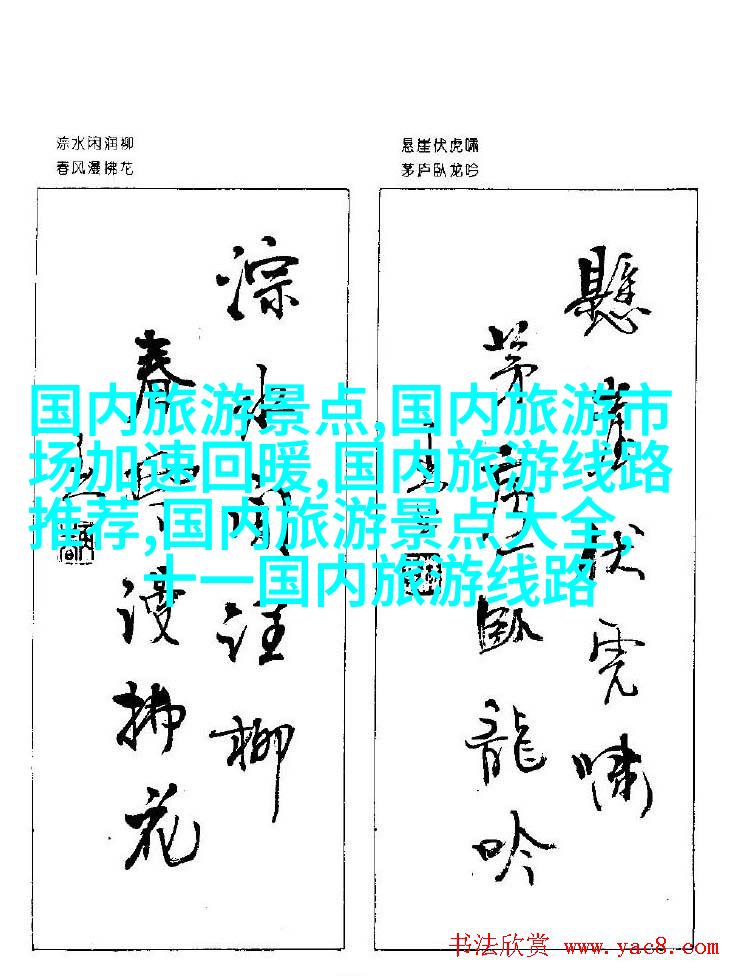 淙水闲润柳
春风漫拂花
悬崖伏虎啸
茅庐卧龙吟
淙水闲注柳
春风漫拂花
懸崖伏虎啸
茅庐臥龍吟
国内旅游景点,国内旅游市
场加速回暖,国内旅游线路
推荐,国内旅游景点大全,
十一国内旅游线路
书法欣赏 www.yac8.com